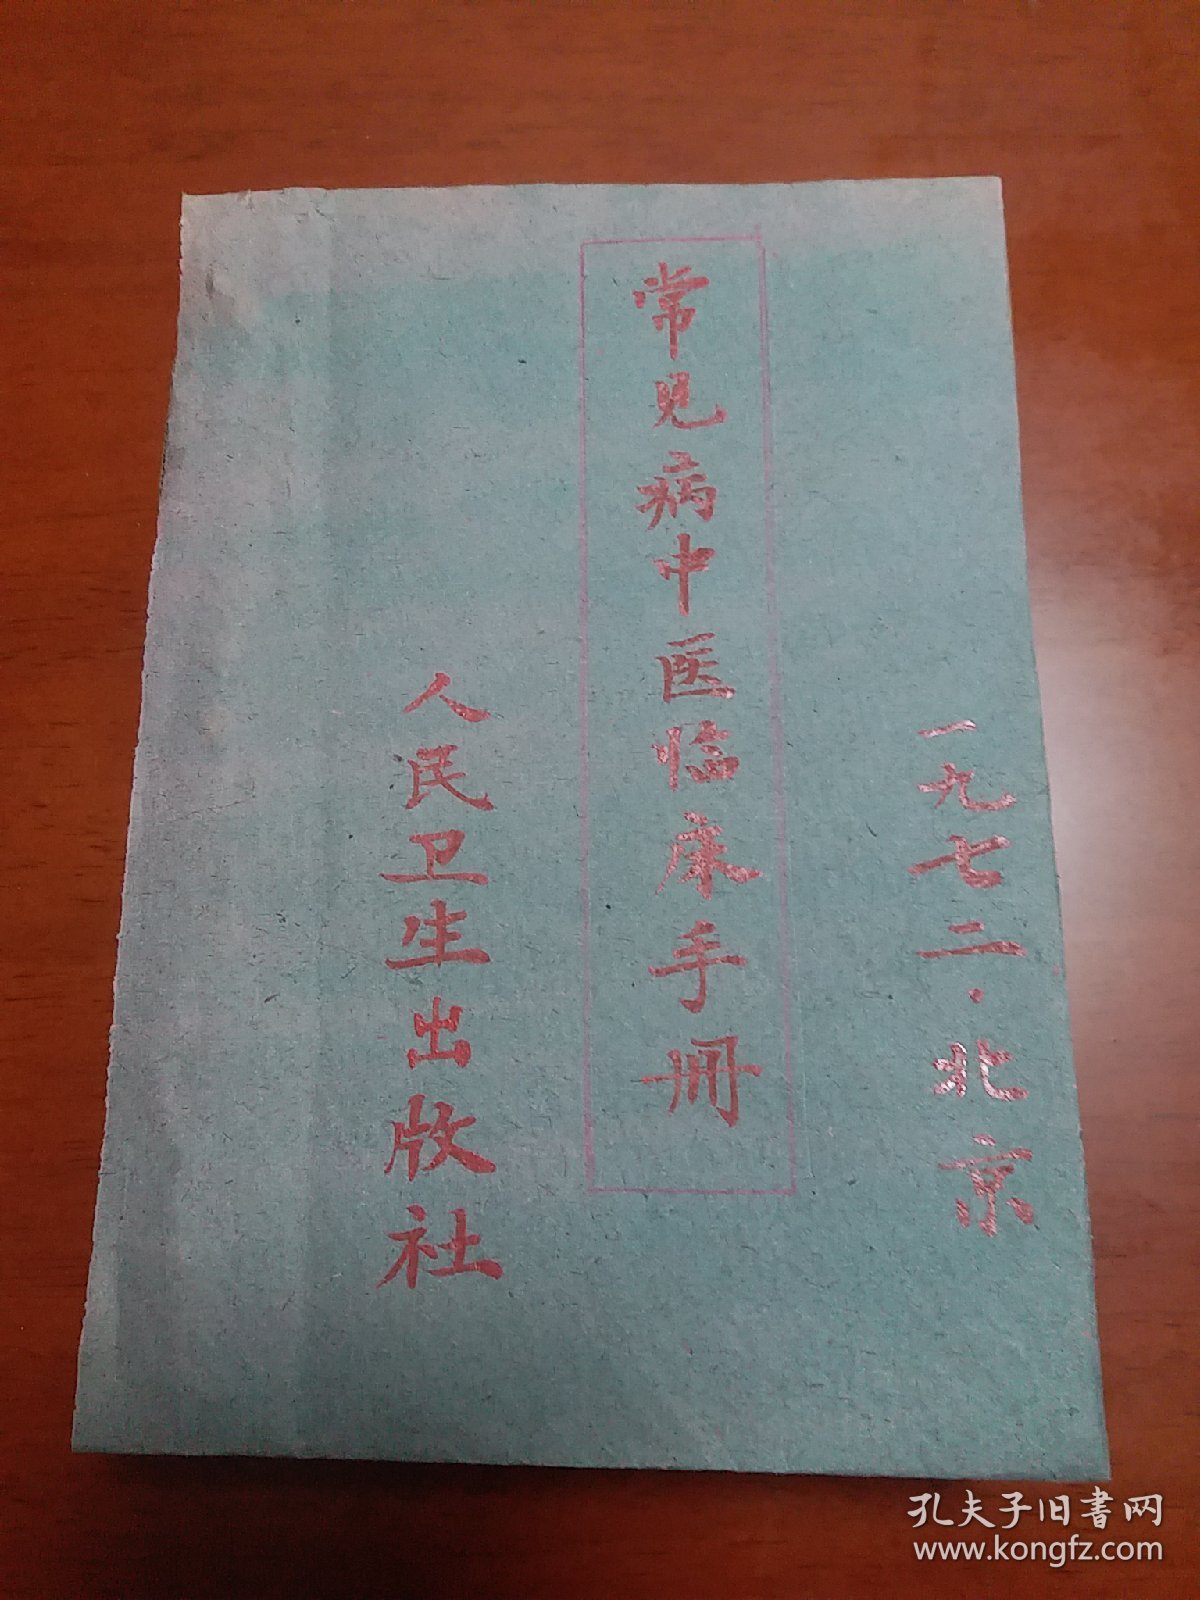 一九七二·北京
常见病中医临床手册
人民卫生出版社
孔夫子旧书网
www.kongfz.com